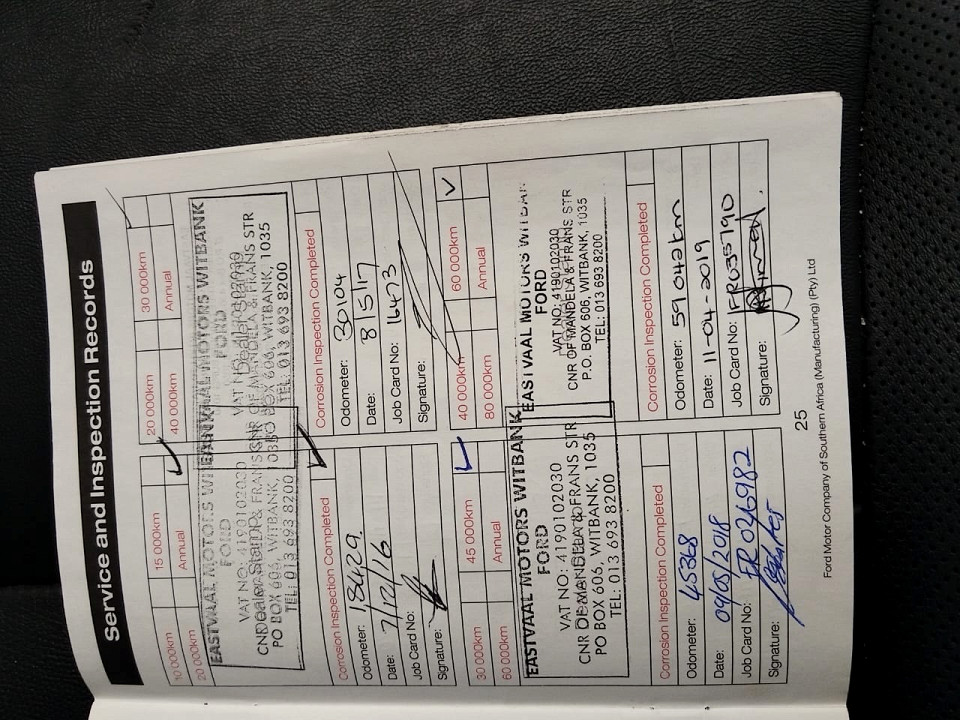 Service and Inspection Records
10 000km
15 000km
20 000km
Annual
EASTVAAL MOTORS WITBANK
FORD
VAT NO: 4190102030
CNR OF MANDELA & FRANS STR
PO BOX 606, WITBANK, 1035
TEL: 013 693 8200
Corrosion Inspection Completed
Odometer: 18429
Date: 7/12/16
Job Card No:
Signature:
20 000km
30 000km
40 000km
Annual
EASTVAAL MOTORS WITBANK
FORD
VAT NO: 4190102030
CNR OF MANDELA & FRANS STR
PO BOX 606, WITBANK, 1035
TEL: 013 693 8200
Corrosion Inspection Completed
Odometer: 30104
Date: 8/5/17
Job Card No: 16473
Signature:
30 000km
45 000km
60 000km
Annual
EASTVAAL MOTORS WITBANK
FORD
VAT NO: 4190102030
CNR OF MANDELA & FRANS STR
PO BOX 606, WITBANK, 1035
TEL: 013 693 8200
Corrosion Inspection Completed
Odometer: 45368
Date: 09/05/2018
Job Card No: FR036982
Signature:
40 000km
60 000km
80 000km
Annual
EASTVAAL MOTORS WITBANK
FORD
VAT NO: 4190102030
CNR OF MANDELA & FRANS STR
P.O. BOX 6006, WITBANK, 1035
TEL: 013 693 8200
Corrosion Inspection Completed
Odometer: 59042km
Date: 11-04-2019
Job Card No:
Signature:
25
Ford Motor Company of Southern Africa (Manufacturing) (Pty) Ltd